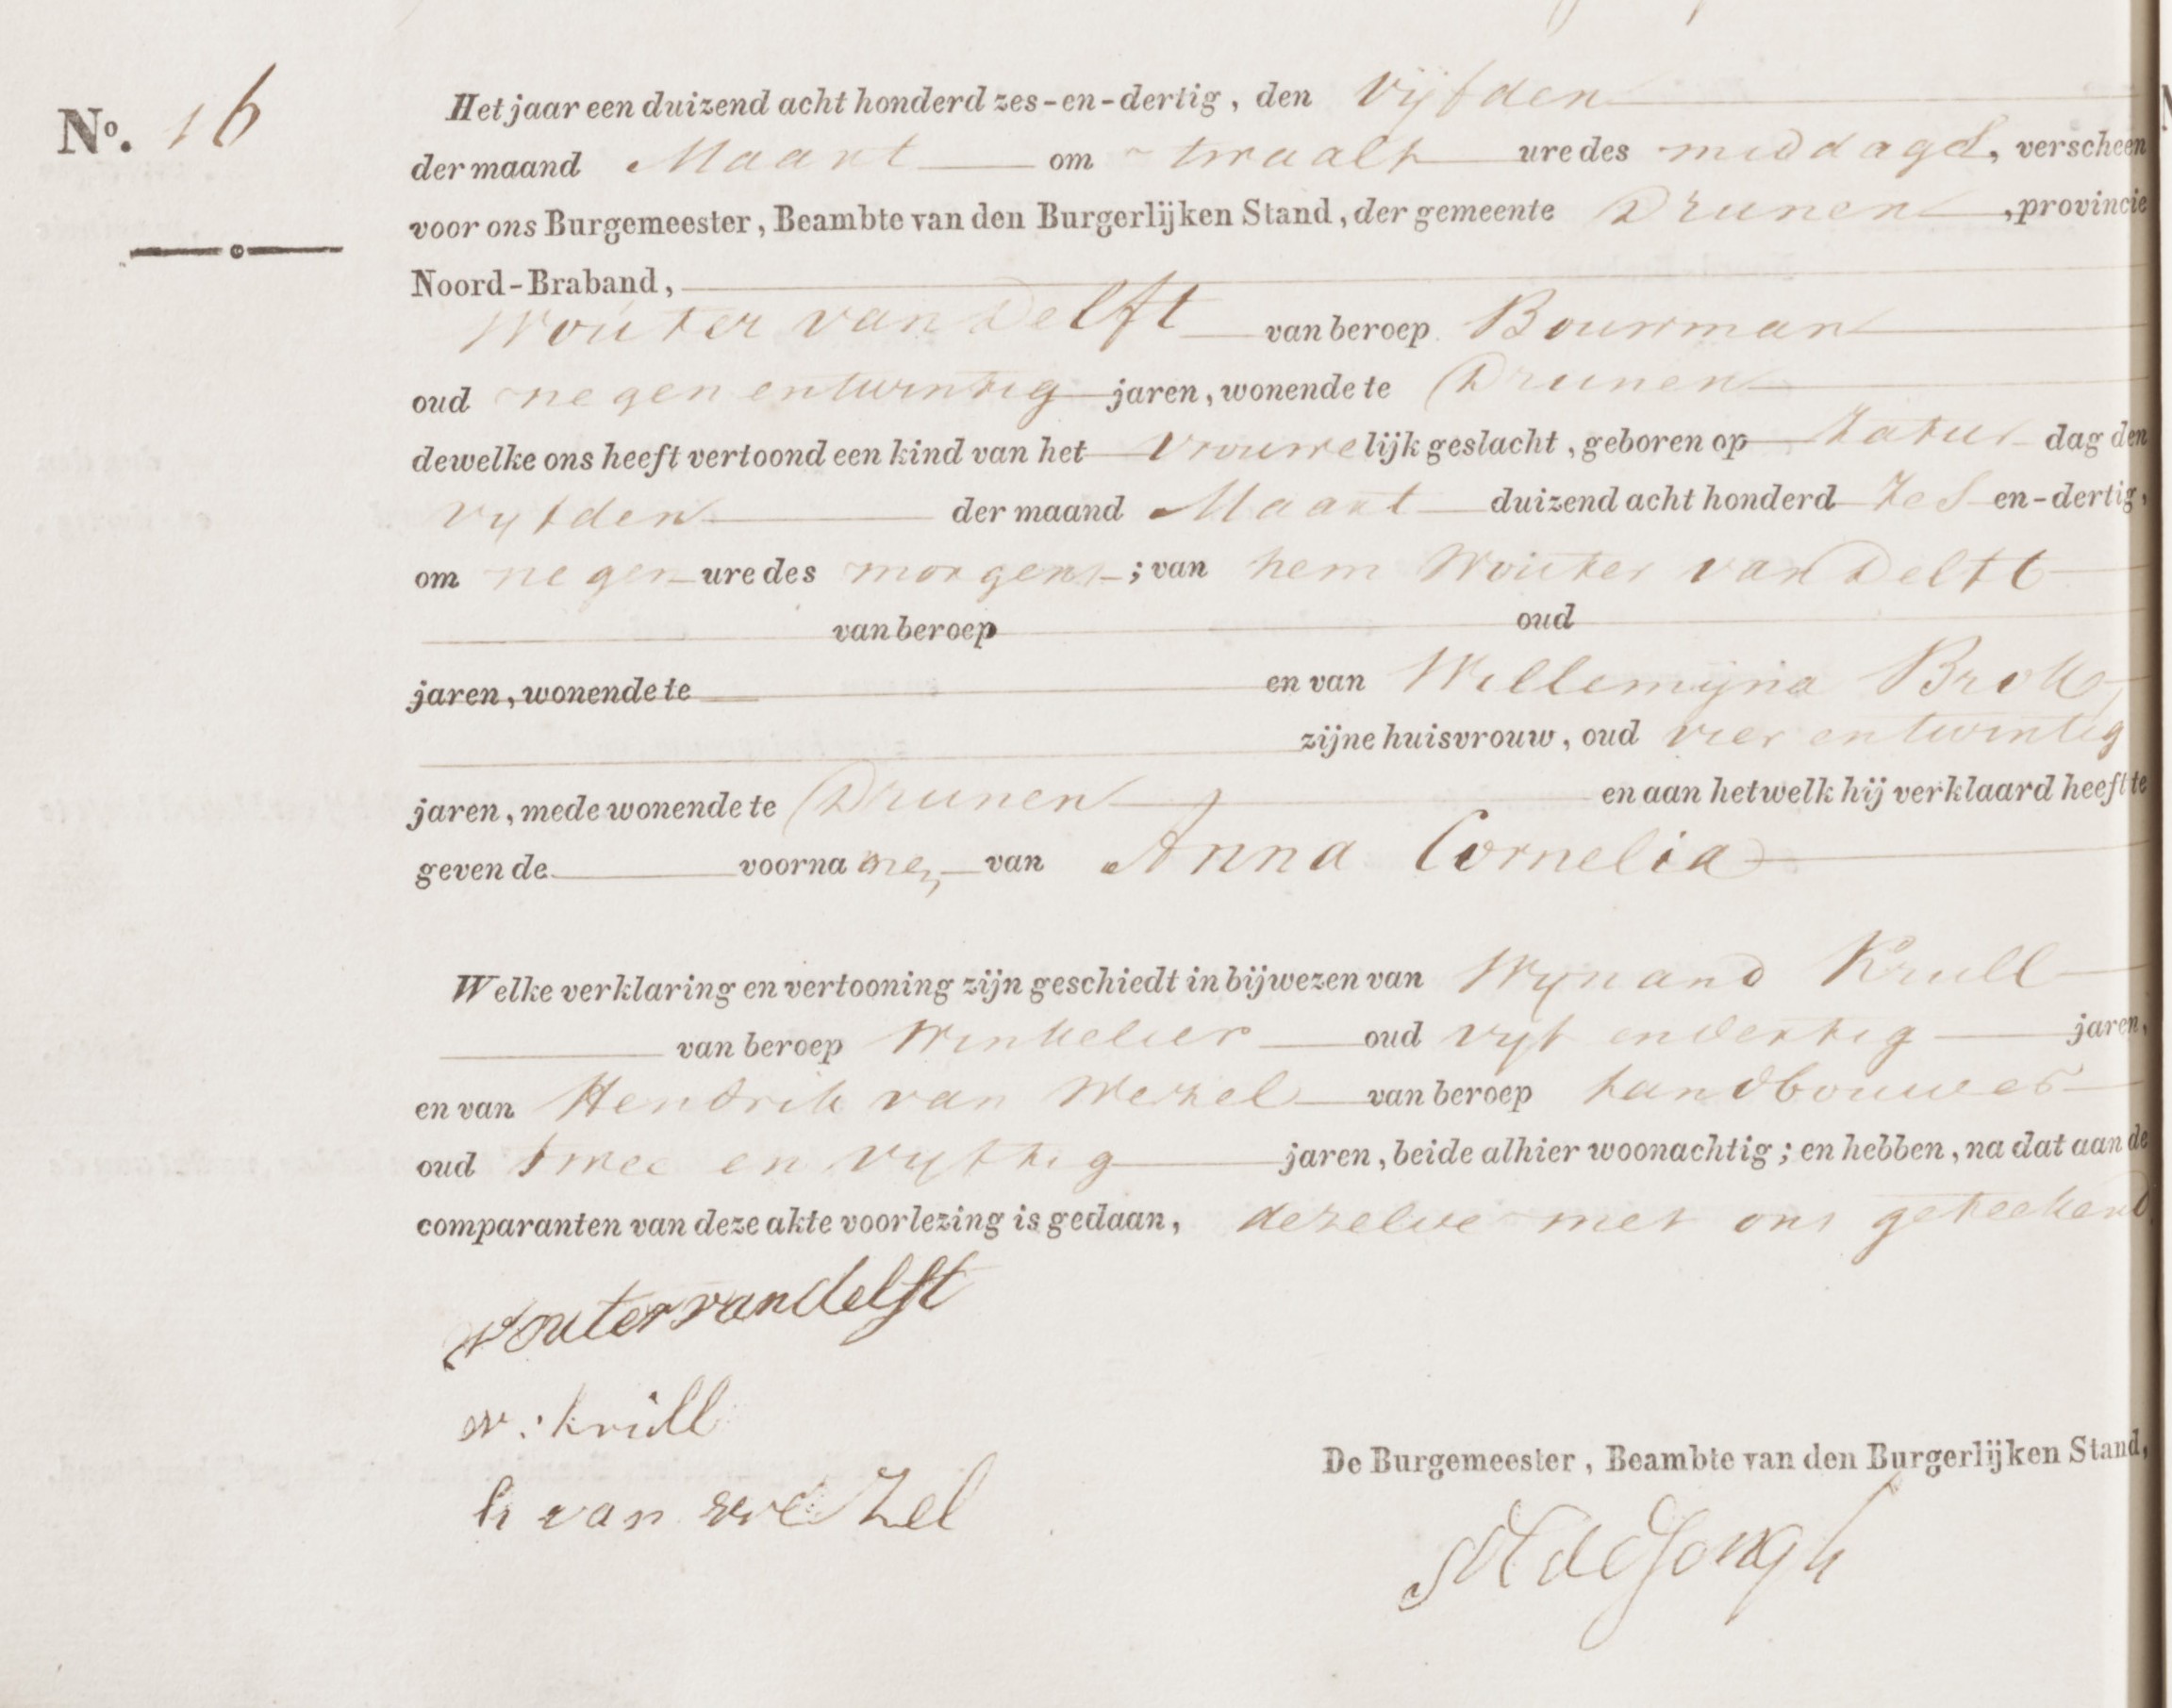 No. 16
Het jaar een duizend acht honderd zes-en-dertig, den vijfden
der maand Maart om twaalf ure des middags, verscheen
voor ons Burgemeester, Beambte van den Burgerlijken Stand, der gemeente Drunen, provincie
Noord-Braband,
Wouter van Delft van beroep Bouwman
oud negen entwintig jaren, wonende te Drunen
dewelke ons heeft vertoond een kind van het vrouwelijk geslacht, geboren op Zatur dag den
vyfden der maand Maart duizend acht honderd zes en-dertig,
om negen ure des morgens; van hem Wouter van Delft
van beroep oud
jaren, wonende te en van Willemijna Brok,
zijne huisvrouw, oud vier entwintig
jaren, mede wonende te Drunen en aan hetwelk hij verklaard heeft te
geven de voornamen van Anna Cornelia
Welke verklaring en vertooning zijn geschiedt in bijwezen van Wynand Krull
van beroep Winkelier oud vyf endertig jaren,
en van Hendrik van Wezel van beroep Landbouwer
oud twee en vyftig jaren, beide alhier woonachtig; en hebben, na dat aan de
comparanten van deze akte voorlezing is gedaan, dezelve met ons geteekend
wouter van delft
w: krull
h van wezel
De Burgemeester, Beambte van den Burgerlijken Stand,
de Jongh